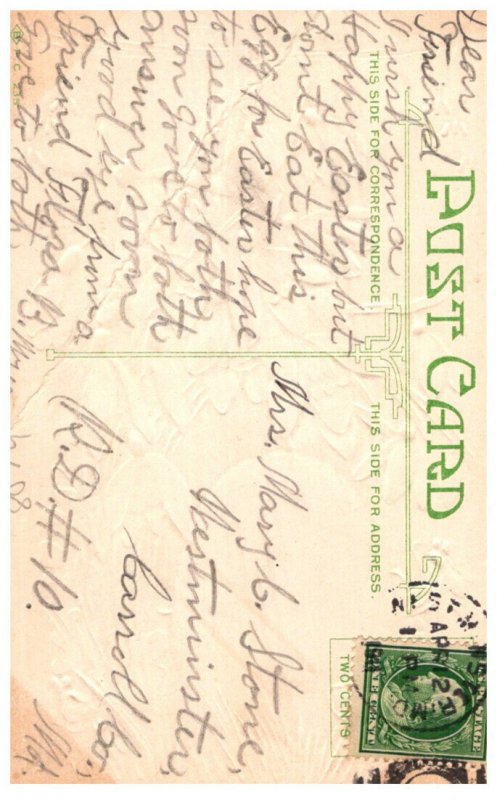 POST CARD
THIS SIDE FOR CORRESPONDENCE
THIS SIDE FOR ADDRESS.
TWO CENTS
Dear
Friend
Just you a
Happy Easter but
don't Eat this
Egg for Easter hope
to see you both
soon love to both
answer soon
good bye from a
Friend Flora B.
love to both
Mrs. Mary C. Stone,
Westminster,
Carroll Co.,
R.D. # 10.
Md.
APR